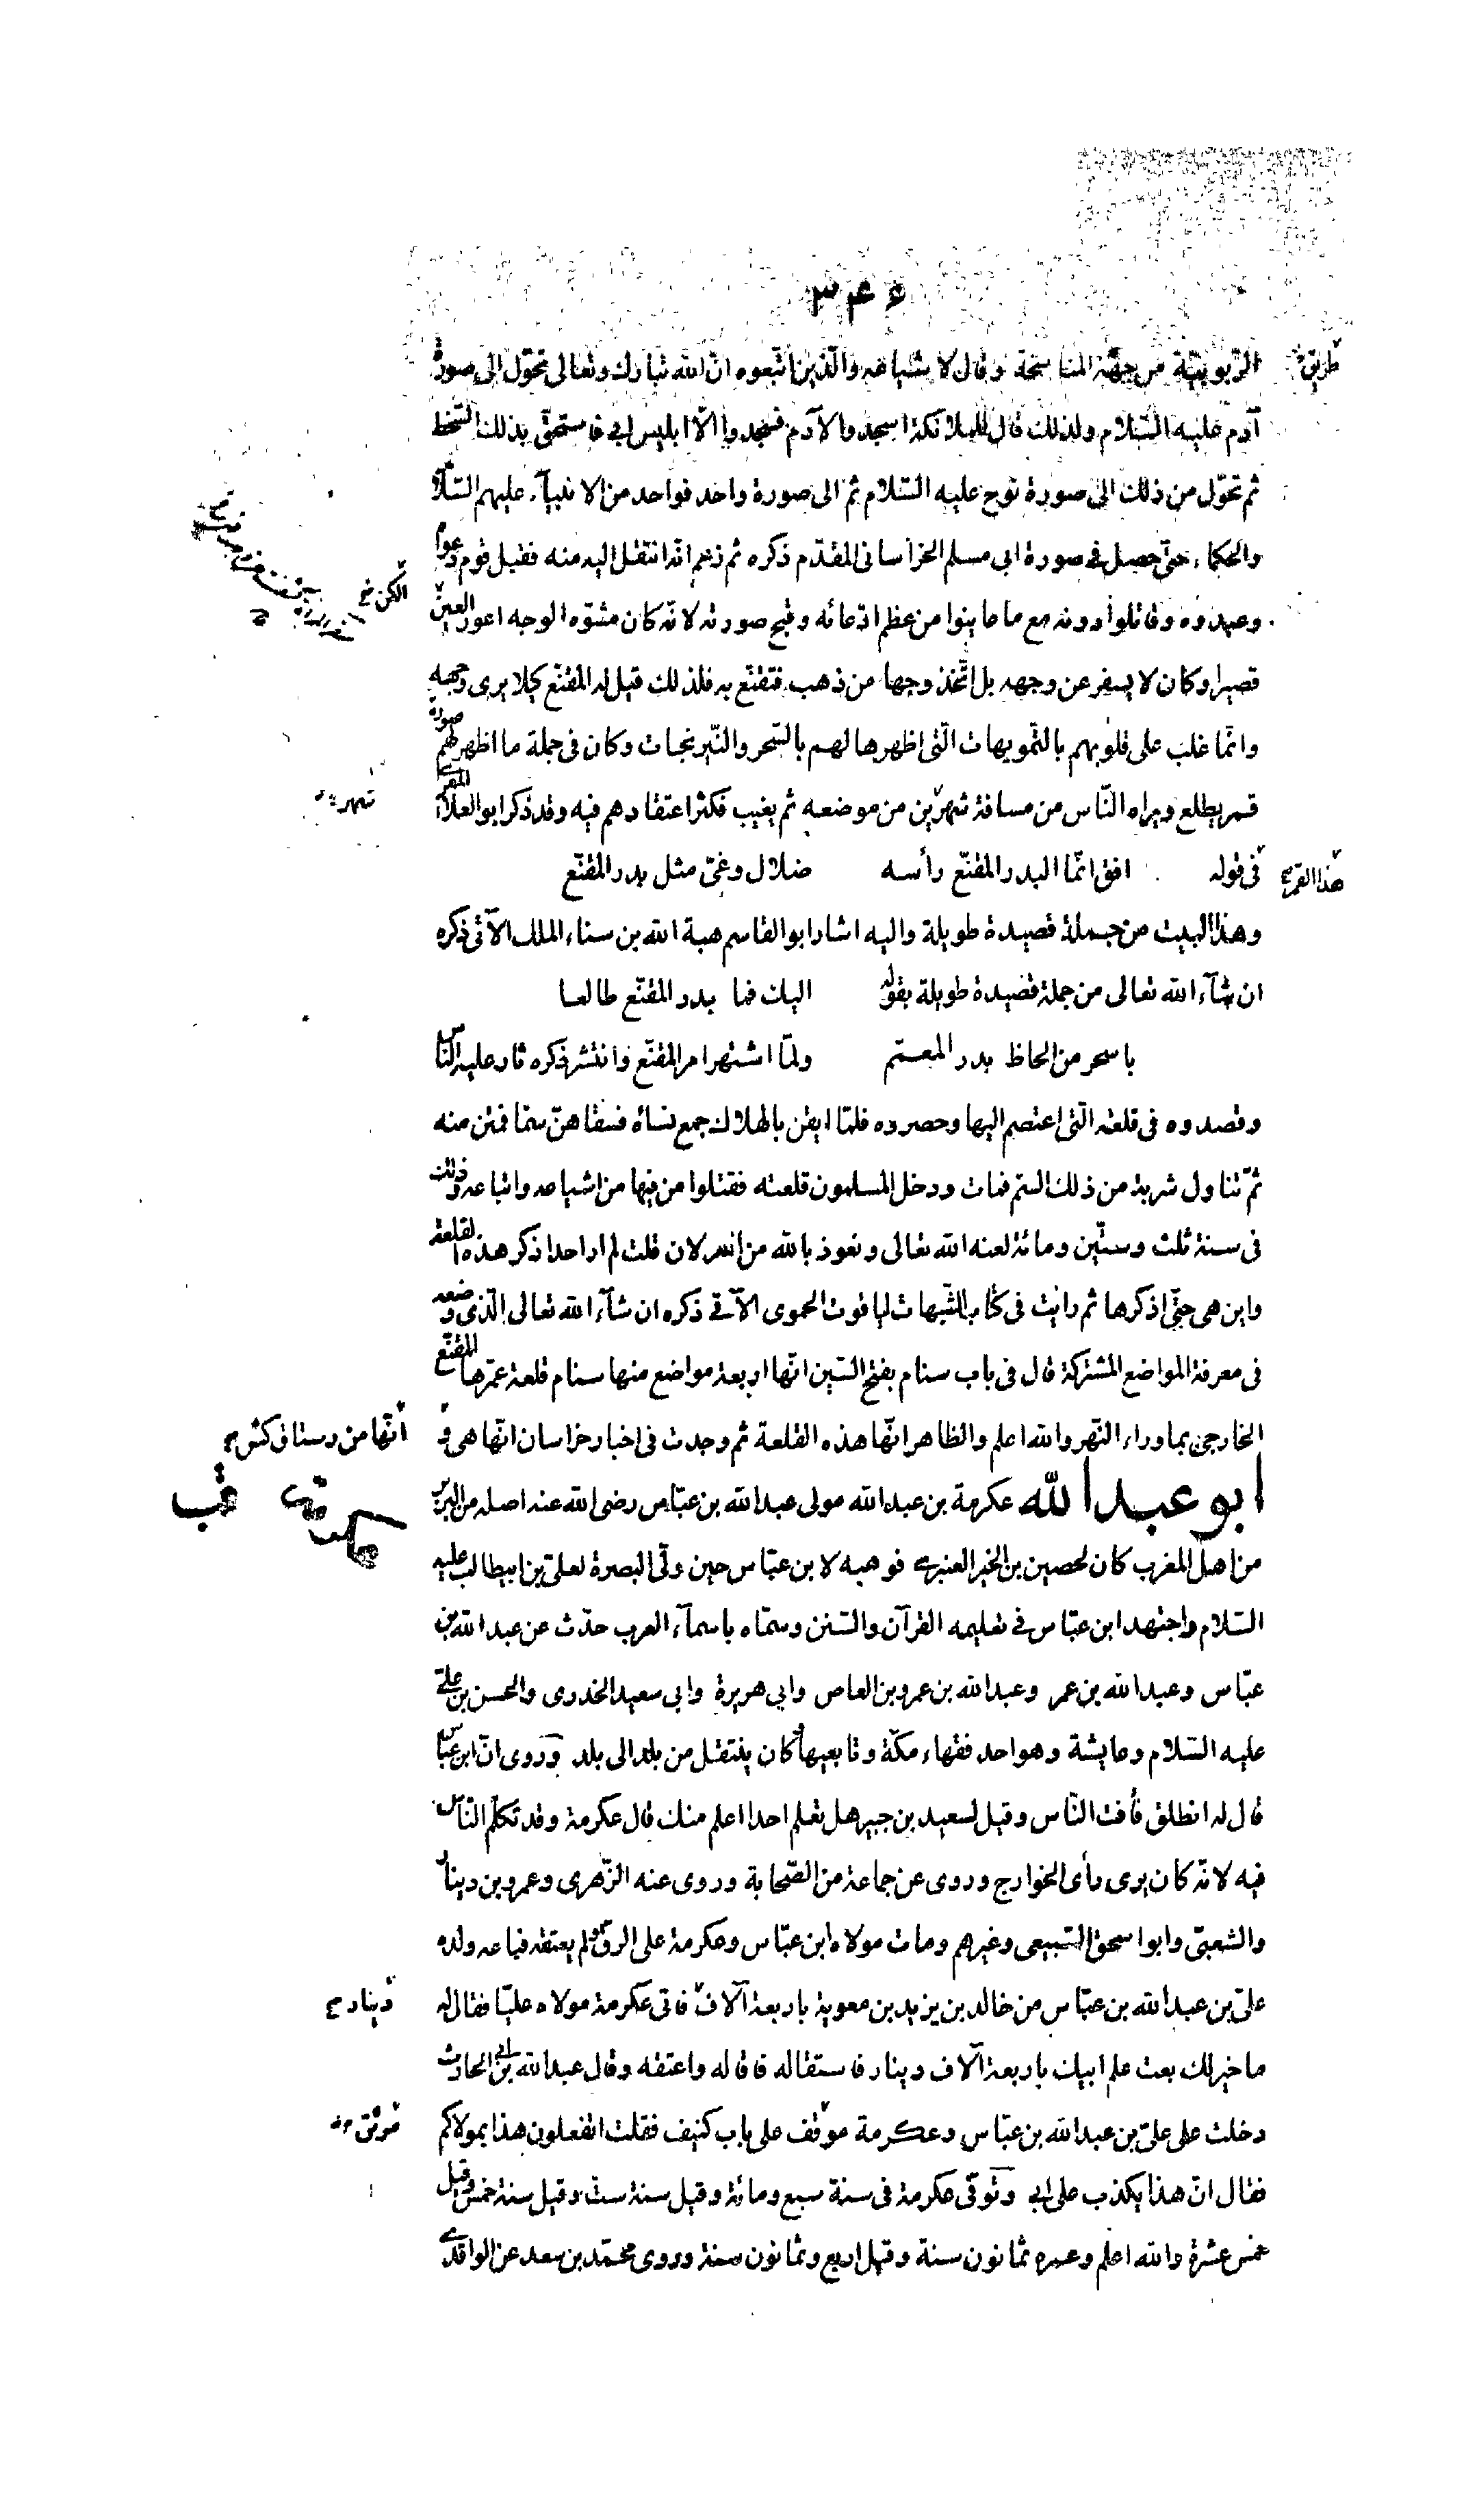 ٣٤٥
الرّبوبيّة من جهة المناسخة وقال لاشياعه والّذين اتّبعوه انّ الله تبارك وتعالى تحوّل الى صورة
آدم عليه السّلام ولذلك قال للملائكة اسجدوا لآدم فسجدوا الّا ابليس ابى فاستحقّ بذلك السّخط
ثم تحوّل من ذلك الى صورة نوح عليه السّلام ثم الى صورة واحد فواحد من الانبيآء عليهم السّلام
والحكماء حتى حصل فى صورة ابى مسلم الخراسانى المقدّم ذكره ثم زعم انّه انتقل اليه منه فقبل قوم دعواه
وعبدوه وقاتلوا دونه مع ما عاينوا من عظم ادّعائه وقبح صورته لانّه كان مشوّه الوجه اعور العين
الكن خ
قصيرا وكان لا يسفر عن وجهه بل اتّخذ وجها من ذهب فتقنّع به فلذلك قيل له المقنّع كيلا يرى وجهه
وانّما غلب على قلوبهم بالتّمويهات الّتى اظهرها لهم بالسّحر والنّيرنجات وكان فى جملة ما اظهر لهم صورة
قمر يطلع ويراه النّاس من مسافة شهرين من موضعه ثم يغيب فكثر اعتقادهم فيه وقد ذكر ابو العلآء المعرى
هذا القمر فى قوله افق انّما البدر المقنّع رأسه ضلال وغىّ مثل بدر المقنّع
وهذا البيت من جملة قصيدة طويلة واليه اشار ابو القاسم هبة الله بن سناء الملك الآتى ذكره
ان شآء الله تعالى من جملة قصيدة طويلة بقوله اليك فما بدر المقنّع طالعا
باسحر من الحاظ بدر المعمّم ولمّا اشتهر امر المقنّع وانتشر ذكره ثار عليه النّاس
وقصدوه فى قلعته الّتى اعتصم اليها وحصروه فلمّا ايقن بالهلاك جمع نسائه فسقاهنّ سمّا فمتن منه
ثمّ تناول شربة من ذلك السّم فمات ودخل المسلمون قلعته فقتلوا من فيها من اشياعه واتباعه وذلك
فى سنة ثلث وستّين ومائة لعنه الله تعالى ونعوذ بالله من الخذلان قلت لم ار احدا ذكر هذه القلعة
واين هى حتّى اذكرها ثم رايت فى كتاب الشّبهات لياقوت الحموى الآتى ذكره ان شآء الله تعالى الّذى وضعه
فى معرفة المواضع المشتركة قال فى باب سنام بفتح السّين انّها اربعة مواضع منها سنام قلعة عمّرها المقنّع
الخارجى بماوراء النّهر والله اعلم والظاهر انّها هذه القلعة ثم وجدت فى اخبار خراسان انّها هى و
أنّها من رستاق كش
ابو عبد الله عكرمة بن عبد الله مولى عبد الله بن عبّاس رضى الله عنه اصله من البربر
من اهل المغرب كان لحصين بن الخير العنبرى فوهبه لابن عبّاس حين ولّى البصرة لعلى بن ابيطالب عليه
السّلام واجتهد ابن عبّاس فى تعليمه القرآن والسّنن وسمّاه باسمآء العرب حدّث عن عبد الله بن
عبّاس وعبد الله بن عمر وعبد الله بن عمرو بن العاص وابى هريرة وابى سعيد الخدرى والحسن بن على
عليه السّلام وعايشة وهو احد فقهاء مكّة وتابعيها كان ينتقل من بلد الى بلد وروى انّ ابن عبّاس
قال له انطلق فأفت النّاس وقيل لسعيد بن جبير هل تعلم احدا اعلم منك قال عكرمة وقد تكلّم النّاس
فيه لانّه كان يرى رأى الخوارج وروى عن جماعة من الصّحابة وروى عنه الزّهرى وعمرو بن دينار
والشعبىّ وابو اسحق السّبيعى وغيرهم ومات مولاه ابن عبّاس وعكرمة على الرقّ ولم يعتقه فباعه ولده
علىّ بن عبد الله بن عبّاس من خالد بن يزيد بن معوية باربعة آلاف فاتى عكرمة مولاه عليّا فقال له
دينار
ما خير لك بعت علم ابيك باربعة آلاف دينار فاستقاله فاقاله واعتقه وقال عبد الله بن ابى الحارث
دخلت على علىّ بن عبد الله بن عبّاس وعكرمة موقف على باب كنيف فقلت اتفعلون هذا بمولاكم
موثق
فقال انّ هذا يكذب على ابى وتوفّى عكرمة فى سنة سبع ومائة وقيل سنة ست وقيل سنة خمس وقيل
خمس عشرة والله اعلم وعمره ثمانون سنة وقيل اربع وثمانون سنة وروى محمّد بن سعد عن الواقدى